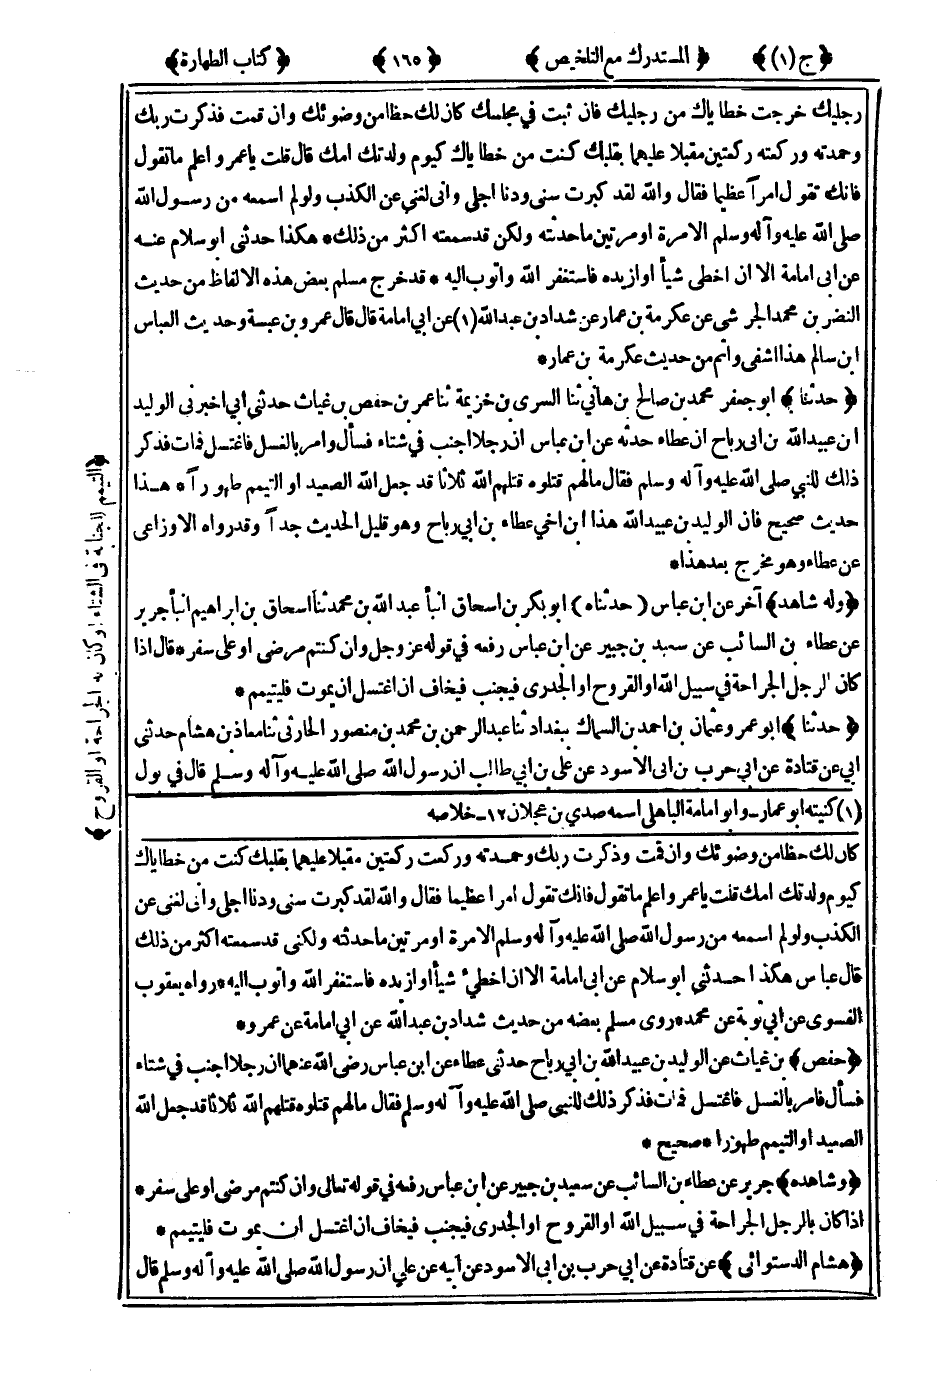 ﴿ ج (١) ﴾ ﴿ المستدرك مع التلخيص ﴾ ﴿ ١٦٥ ﴾ ﴿ كتاب الطهارة ﴾
رجليك خرجت خطاياك من رجليك فان ثبت في مجلسك كان لك حظا من وضوئك وان قمت فذكرت ربك
وحمدته وركعته ركعتين مقبلا عليهما بقلبك كنت من خطاياك كيوم ولدتك امك قال قلت ياعمرو اعلم ماتقول
فانك تقول امرآ عظيما فقال والله لقد كبرت سنى ودنا اجلي وانى لغني عن الكذب ولولم اسمعه من رسول الله
صلى الله عليه وآله وسلم الامرة اومرتين ماحدثته ولكن قد سمعته اكثر من ذلك* هكذا حدثني ابوسلام عنه
عن ابى امامة الا ان اخطى شيأ اوازيده فاستغفر الله واتوب اليه * قد خرج مسلم بعض هذه الالفاظ من حديث
النضر بن محمد الجرشي عن عكرمة بن عمار عن شداد بن عبدالله (١) عن ابي امامة قال قال عمرو بن عبسة وحديث العباس
ابن سالم هذا اشفى واتم من حديث عكرمة بن عمار*
﴿ حدثنا ﴾ ابوجعفر محمد بن صالح بن هاني ثنا السرى بن خزيمة ثنا عمر بن حفص بن غياث حدثني ابي اخبرنى الوليد
ابن عبيدالله بن ابى رباح ان عطاء حدثه عن ابن عباس ان رجلا اجنب في شتاء فسأل وامر بالغسل فاغتسل فمات فذكر
ذلك للنبي صلى الله عليه وآله وسلم فقال مالهم قتلوه قتلهم الله ثلاثا قد جعل الله الصعيد او التيمم طهورآ* هذا
حديث صحيح فان الوليد بن عبيدالله هذا ابن اخي عطاء بن ابي رباح وهو قليل الحديث جدآ وقدرواه الاوزاعى
عن عطاء وهو مخرج بعد هذا*
﴿وله شاهد﴾ آخر عن ابن عباس ( حدثناه ) ابوبكر بن اسحاق انبأ عبدالله بن محمد ثنا اسحاق بن ابراهيم انبأ جرير
عن عطاء بن السائب عن سعيد بن جبير عن ابن عباس رفعه في قوله عزوجل وان كنتم مرضى اوعلى سفر*قال اذا
كان الرجل الجراحة في سبيل الله او القروح او الجدرى فيجنب فيخاف ان اغتسل ان يموت فليتيمم *
﴿ حدثنا ﴾ ابوعمرو عثمان بن احمد بن السماك ببغداد ثنا عبدالرحمن بن محمد بن منصور الحارثى ثنا معاذ بن هشام حدثني
ابي عن قتادة عن ابي حرب بن ابى الاسود عن علي بن ابي طالب ان رسول الله صلى الله عليه وآله وسلم قال في بول
(١) كنيته ابوعمار-وابو امامة الباهلى اسمه صدي بن عجلان ١٢-خلاصه
كان لك حظا من وضوئك وان قمت وذكرت ربك وحمدته وركعت ركعتين مقبلا عليهما بقلبك كنت من خطاياك
كيوم ولدتك امك قلت ياعمرو اعلم ماتقول فانك تقول امرا عظيما فقال والله لقد كبرت سنى ودنا اجلى وانى لغنى عن
الكذب ولولم اسمعه من رسول الله صلى الله عليه وآله وسلم الامرة اومرتين ماحدثته ولكنى قد سمعته اكثر من ذلك
قال عباس هكذا حدثني ابوسلام عن ابى امامة الا ان اخطئ شيأ اوازيده فاستغفر الله واتوب اليه*رواه يعقوب
الفسوى عن ابي توبة عن محمد*روى مسلم بعضه من حديث شداد بن عبدالله عن ابي امامة عن عمرو*
﴿حفص﴾ بن غياث عن الوليد بن عبيدالله بن ابي رباح حدثني عطاء عن ابن عباس رضى الله عنهما ان رجلا اجنب في شتاء
فسأل فامر بالغسل فاغتسل فمات فذكر ذلك للنبي صلى الله عليه وآله وسلم فقال مالهم قتلوه قتلهم الله ثلاثا قد جعل الله
الصعيد او التيمم طهورا *صحيح *
﴿وشاهده﴾ جرير عن عطاء بن السائب عن سعيد بن جبير عن ابن عباس رفعه في قوله تعالى وان كنتم مرضى اوعلى سفر*
اذا كان بالرجل الجراحة في سبيل الله او القروح او الجدرى فيجنب فيخاف ان اغتسل ان يموت فليتيمم *
﴿هشام الدستوائى ﴾ عن قتادة عن ابي حرب بن ابى الاسود عن ابيه عن علي ان رسول الله صلى الله عليه وآله وسلم قال
﴿ التيمم للجنابة فى الشتاء اوكان به الجراحة او القروح ﴾